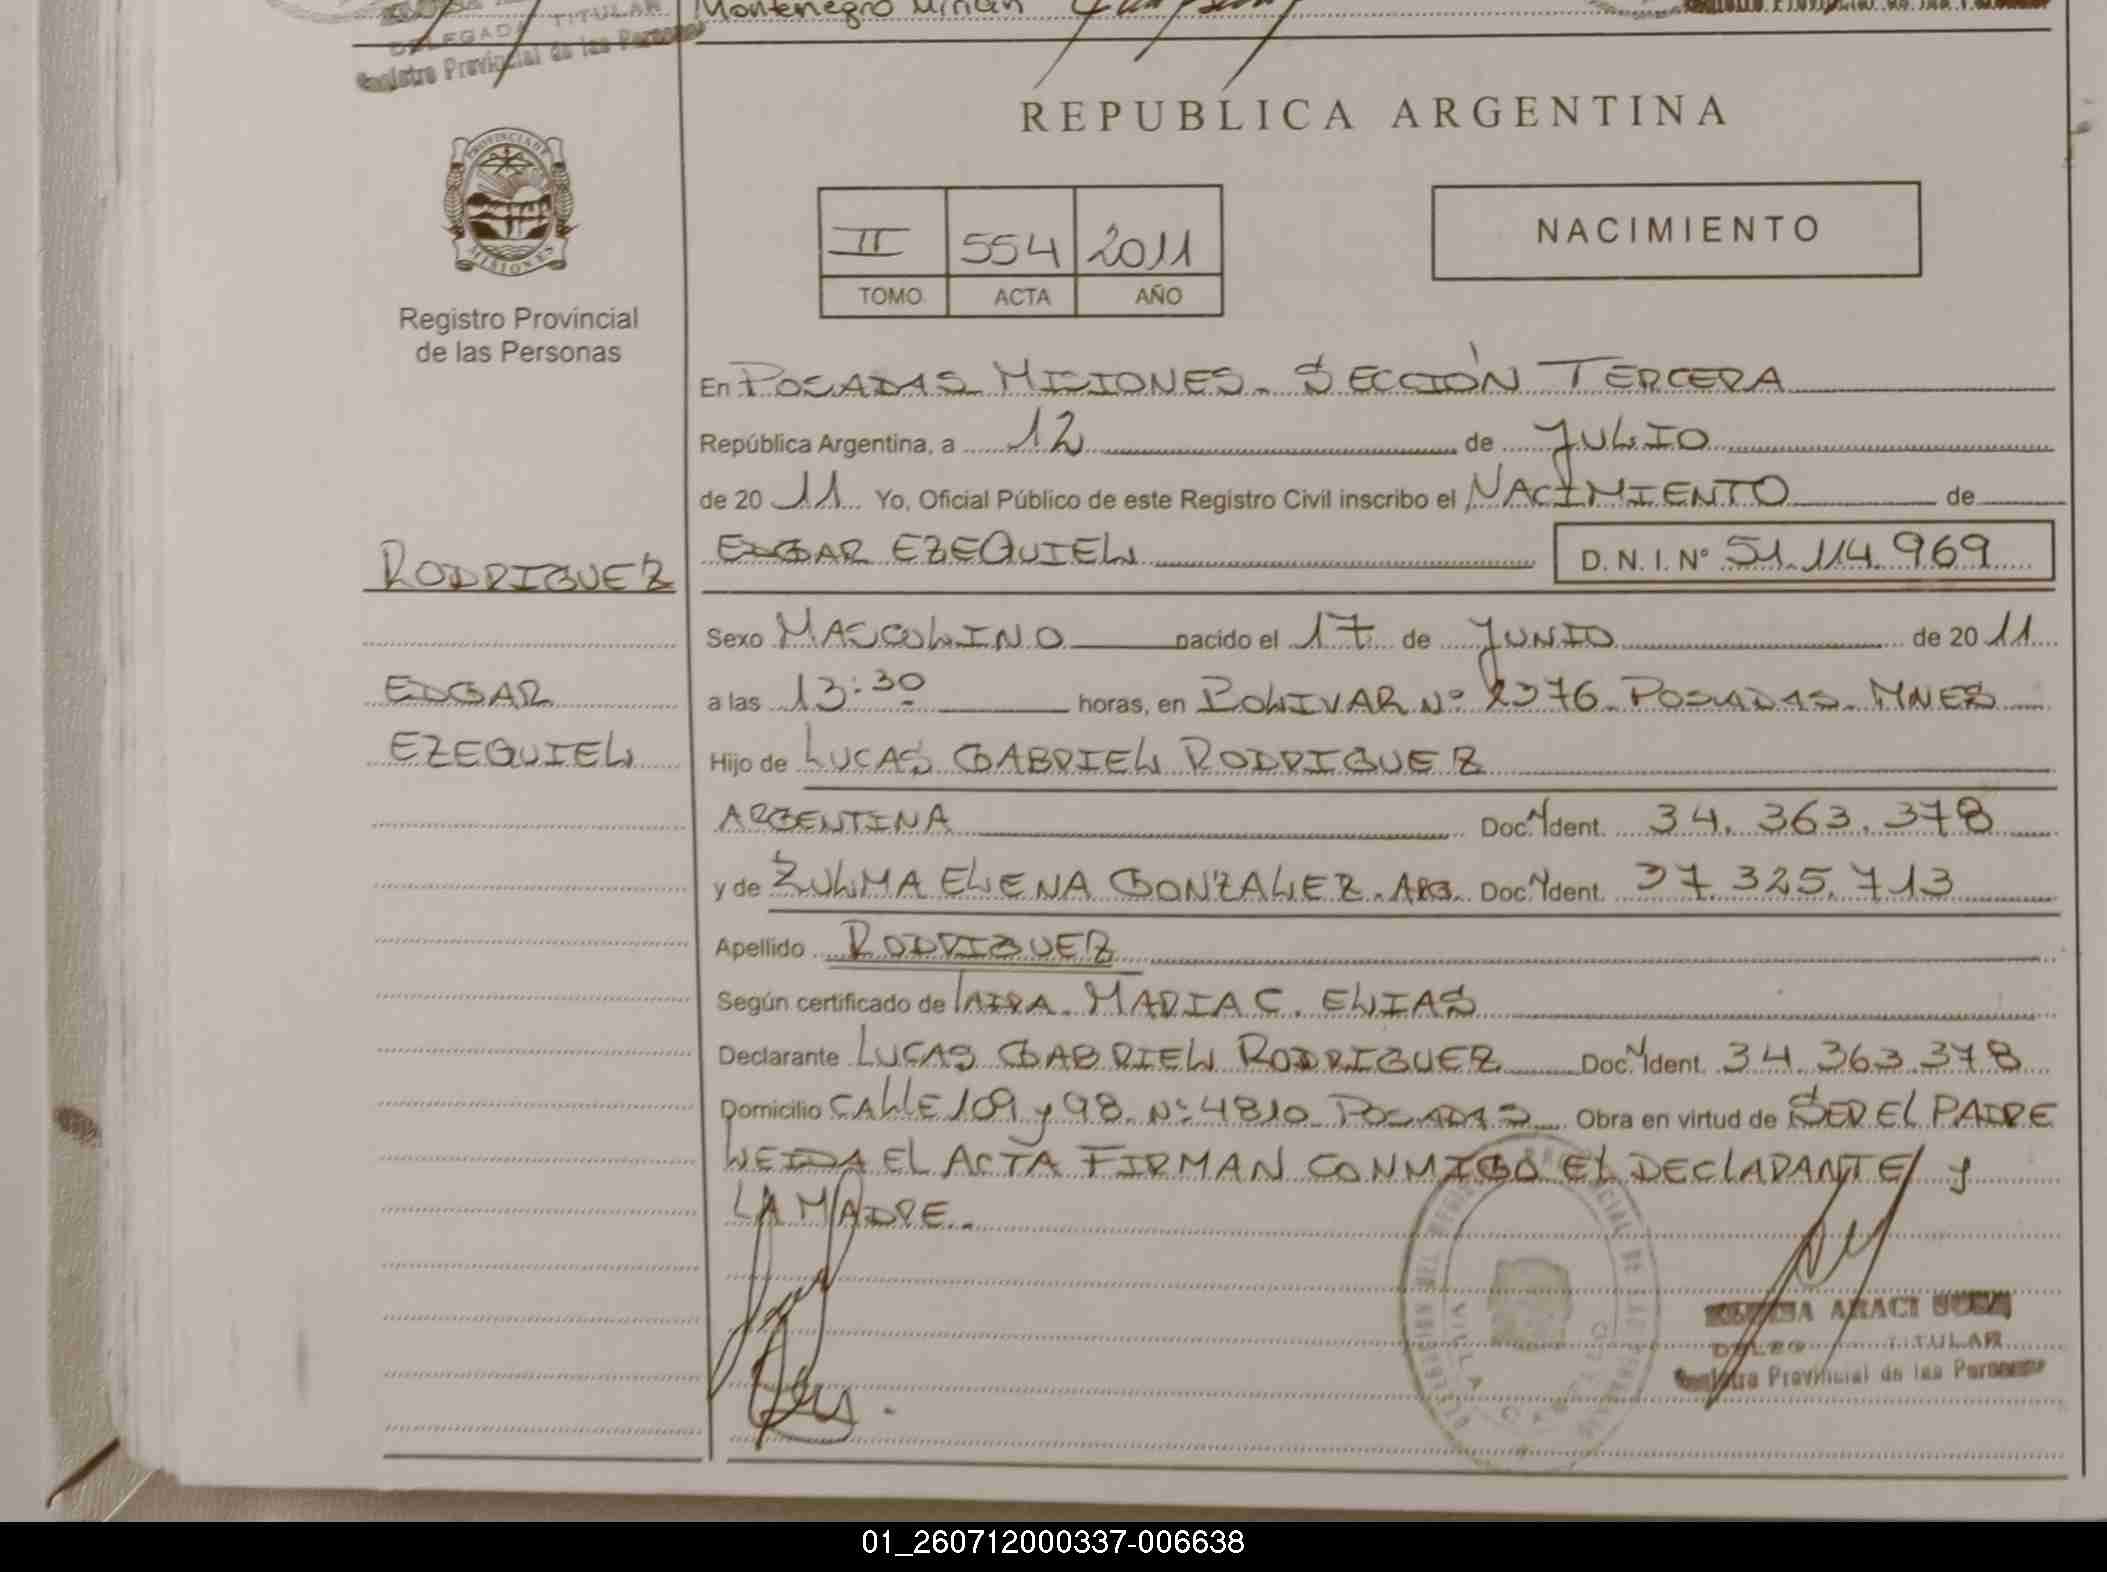 TITULAR
Montenegro Mirian
Registro Provincial de las Personas
REPUBLICA ARGENTINA
PROVINCIA DE
MISIONES
II 554 2011
TOMO ACTA AÑO
NACIMIENTO
Registro Provincial
de las Personas
En POSADAS MISIONES. SECCIÓN TERCERA
República Argentina, a 12 de JULIO
de 20 11 Yo, Oficial Público de este Registro Civil inscribo el NACIMIENTO de
EDGAR EZEQUIEL D. N. I. Nº 51.114.969
RODRIGUEZ
Sexo MASCULINO nacido el 17 de JUNIO de 20 11
EDGAR
a las 13:30 horas, en BOLIVAR Nº 2376 POSADAS. MNES
EZEQUIEL
Hijo de LUCAS GABRIEL RODRIGUEZ
ARGENTINA Doc. Ident. 34.363.378
y de ZULMA ELENA GONZALEZ. ARG. Doc. Ident. 37.325.713
Apellido RODRIGUEZ
Según certificado de MARIA C. ELIAS
Declarante LUCAS GABRIEL RODRIGUEZ Doc. Ident. 34.363.378
Domicilio CALLE 109 y 98. Nº 4810 POSADAS Obra en virtud de SER EL PADRE
LEIDA EL ACTA FIRMAN CONMIGO EL DECLARANTE y
LA MADRE.
ARACI
TITULAR
Registro Provincial de las Personas
01_260712000337-006638